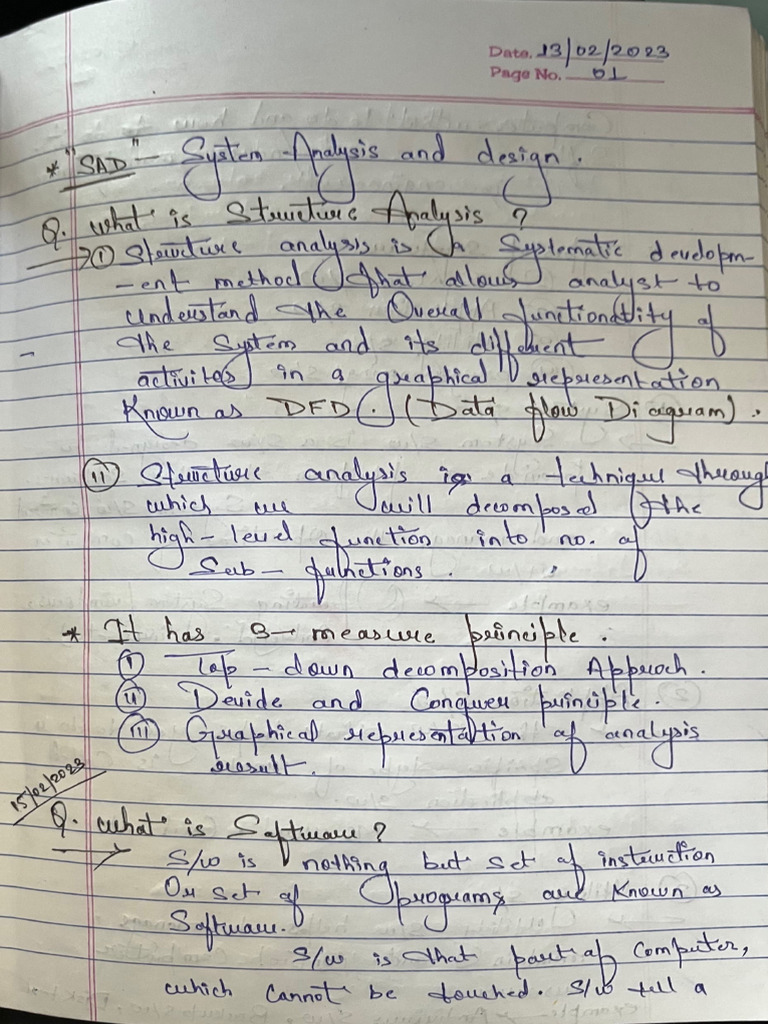 Date. 13/02/2023
Page No. 01
* "SAD" - System Analysis and design.
Q. what is Structure Analysis ?
→ (i) Structure analysis is a Systematic developm-
-ent method that allows analyst to
understand the Overall functionality of
- the System and its different
activites in a graphical representation
Known as DFD. (Data flow Diagram).
(ii) Structure analysis is a technique through
which we will decomposed the
high-level function into no. of
Sub-functions.
* It has 3-measure principle.
(i) Top-down decomposition Approch.
(ii) Devide and Conquer principle.
(iii) Graphical representation of analysis
result.
15/02/2023
Q. what is Software ?
→ S/w is nothing but set of instruction
Or set of programs are Known as
Software.
S/w is that part of computer,
which cannot be touched. S/w tell a